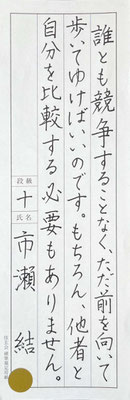 誰とも競争することなく、ただ前を向いて
歩いてゆけばいいのです。もちろん、他者と
自分を比較する必要もありません。
段級
十
氏名
市瀬 結